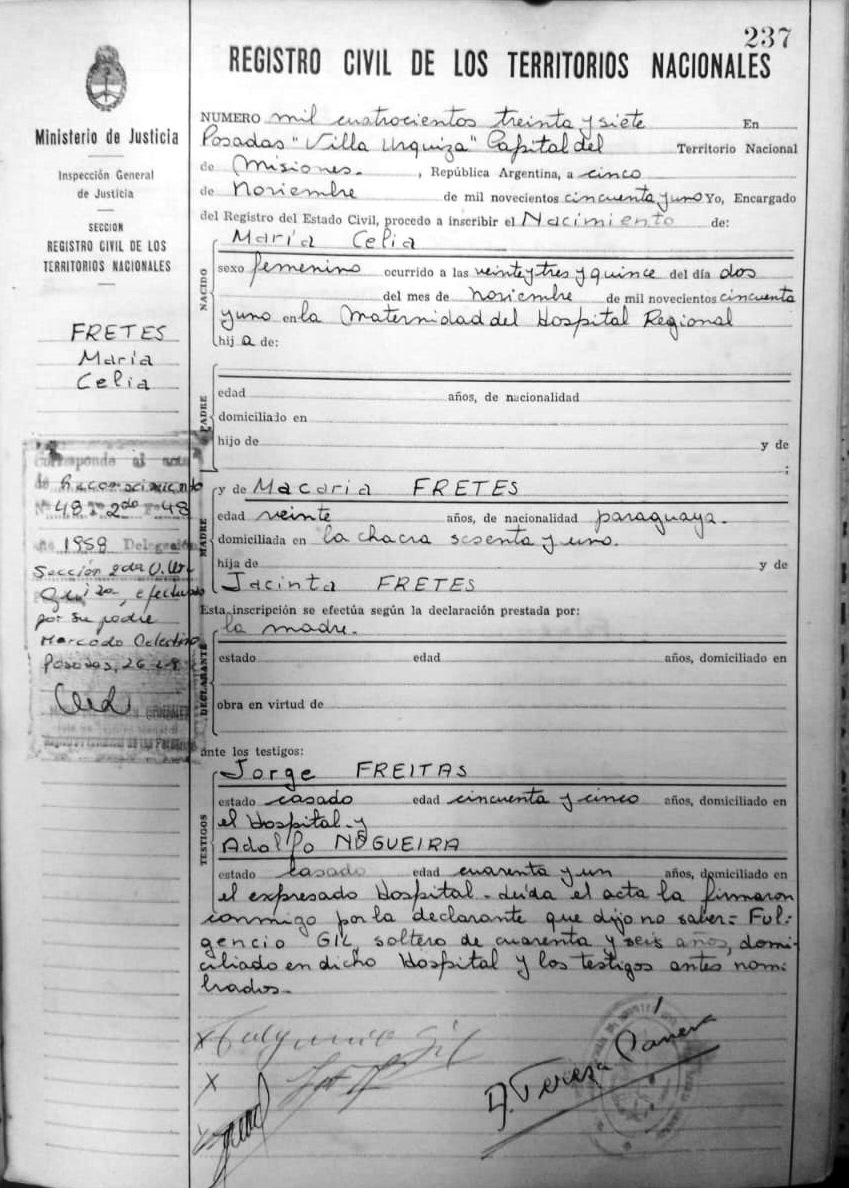 237
REGISTRO CIVIL DE LOS TERRITORIOS NACIONALES
Ministerio de Justicia
Inspección General
de Justicia
SECCION
REGISTRO CIVIL DE LOS
TERRITORIOS NACIONALES
FRETES
María
Celia
Corresponde al acta
de Reconocimiento
Nº 48 T. 2do Fº 48
año 1958 Delegación
Sección 2da V. Ur
quiza, efectuado
por su padre
Marcado Celestino
Posadas, 26
NUMERO mil cuatrocientos treinta y siete En
Posadas "Villa Urquiza" Capital del Territorio Nacional
de Misiones. , República Argentina, a cinco
de Noviembre de mil novecientos cincuenta y uno Yo, Encargado
del Registro del Estado Civil, procedo a inscribir el Nacimiento de:
NACIDO
María Celia
sexo femenino ocurrido a las veinte y tres y quince del día dos
del mes de noviembre de mil novecientos cincuenta
y uno en la Maternidad del Hospital Regional
hij a de:
PADRE
edad años, de nacionalidad
domiciliado en
hijo de y de
;
MADRE
y de Macaria FRETES
edad veinte años, de nacionalidad paraguaya.
domiciliada en la chacra sesenta y uno.
hija de y de
Jacinta FRETES
Esta inscripción se efectúa según la declaración prestada por:
DECLARANTE
la madre.
estado edad años, domiciliado en
obra en virtud de
ante los testigos:
TESTIGOS
Jorge FREITAS
estado casado edad cincuenta y cinco años, domiciliado en
el Hospital - y
Adolfo NOGUEIRA
estado casado edad cuarenta y un años, domiciliado en
el expresado Hospital - Leída el acta la firmaron
conmigo por la declarante que dijo no saber = Ful-
gencio GIL, soltero de cuarenta y seis años, domi-
ciliado en dicho Hospital y los testigos antes nom-
brados.-
Fulgencio Gil